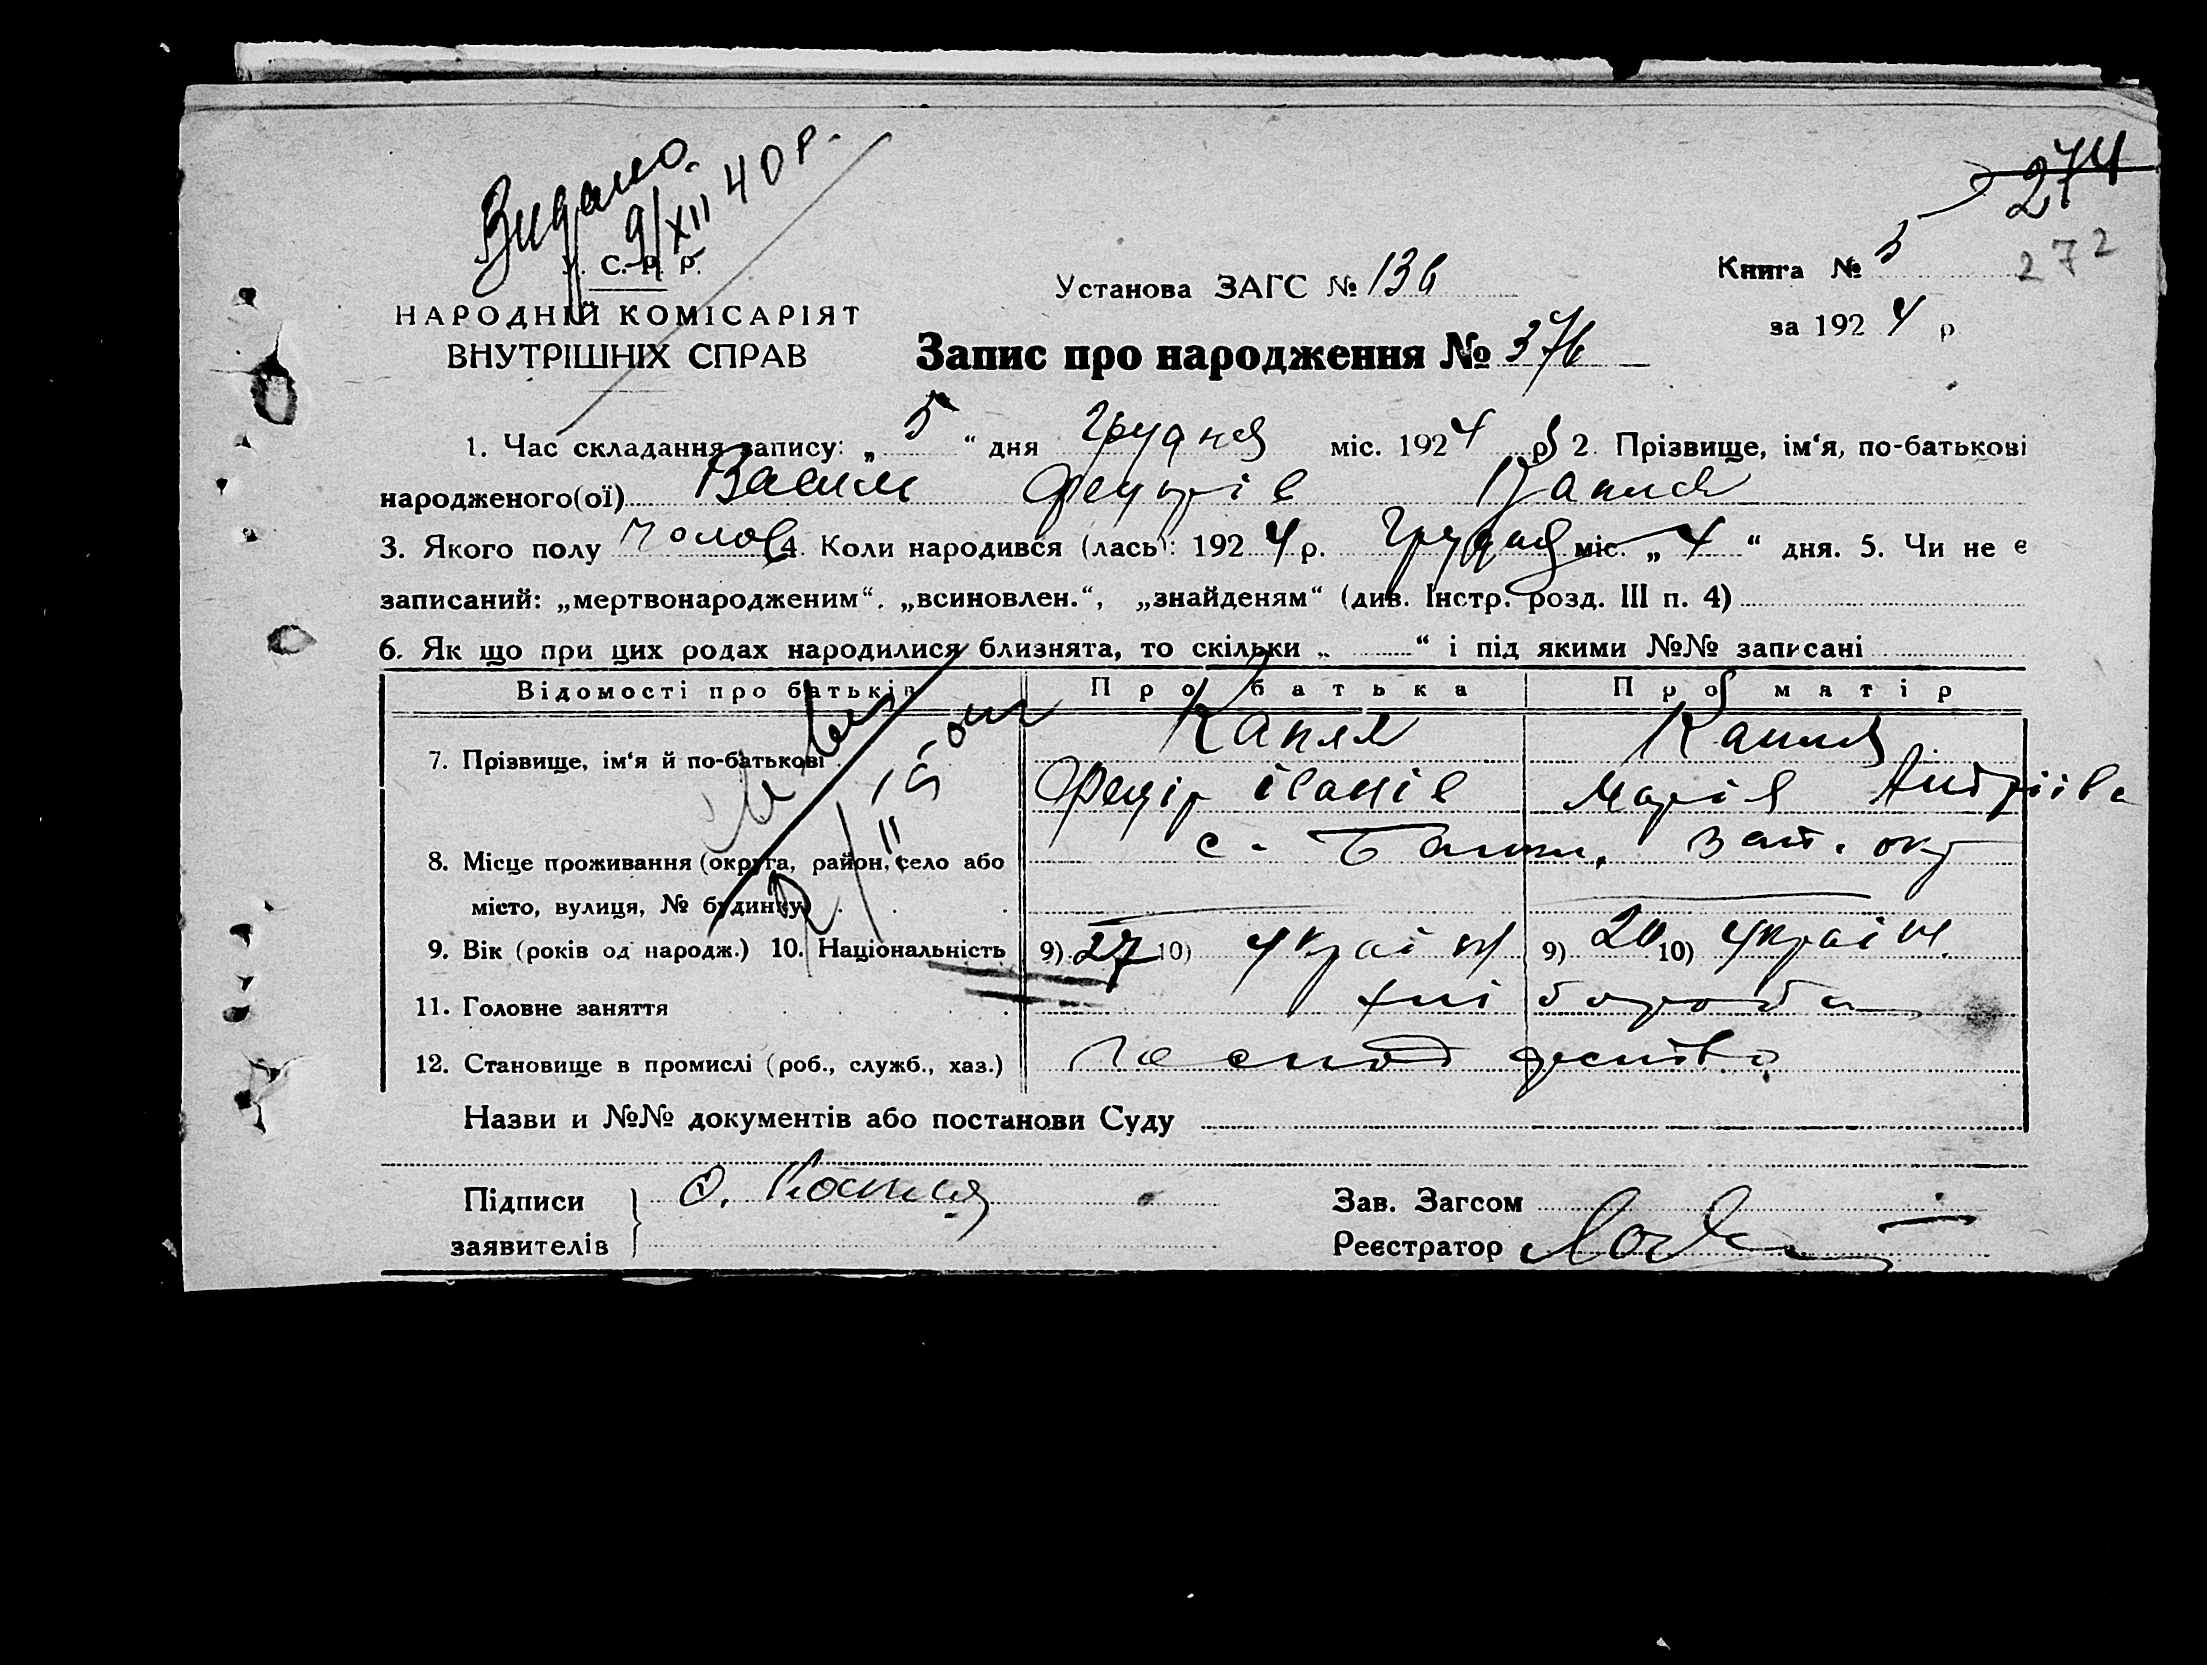 Видано.
9/XII 40 р.
274
272
У. С. Р. Р.
НАРОДНІЙ КОМІСАРІЯТ
ВНУТРІШНІХ СПРАВ
Установа ЗАГС № 136
Книга № 5
за 1924 р
Запис про народження № 376
1. Час складання запису: „ 5 “ дня Грудня міс. 1924 р 2. Прізвище, ім‘я, по-батькові
народженого(ої) Васил Федорів Капля
3. Якого полу чолов 4. Коли народився (лась): 1924 р. Грудня міс. „ 4 “ дня. 5. Чи не є
записаний: „мертвонародженим“, „всиновлен.“, „знайденям“ (див. Інстр. розд. III п. 4)
6. Як що при цих родах народилися близнята, то скільки „ “ і під якими №№ записані
Відомості про батьків Про батька Про матір
7. Прізвище, ім‘я й по-батькові Капля Капля
Федір Іванів Марія Андріїва
8. Місце проживання (округа, район, село або с. окр
місто, вулиця, № будинку)
9. Вік (років од народж.) 10. Національність 9) 27 10) україн 9) 20 10) україн.
11. Головне заняття хлібороби
12. Становище в промислі (роб., служб., хаз.)
Назви и №№ документів або постанови Суду
Підписи
заявителів
Зав. Загсом
Реєстратор